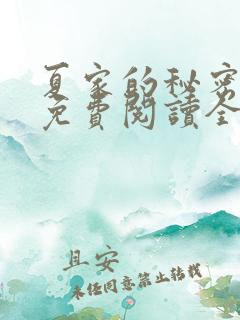 夏家的秘密
免費閱讀全
且安
未经同意禁止转载